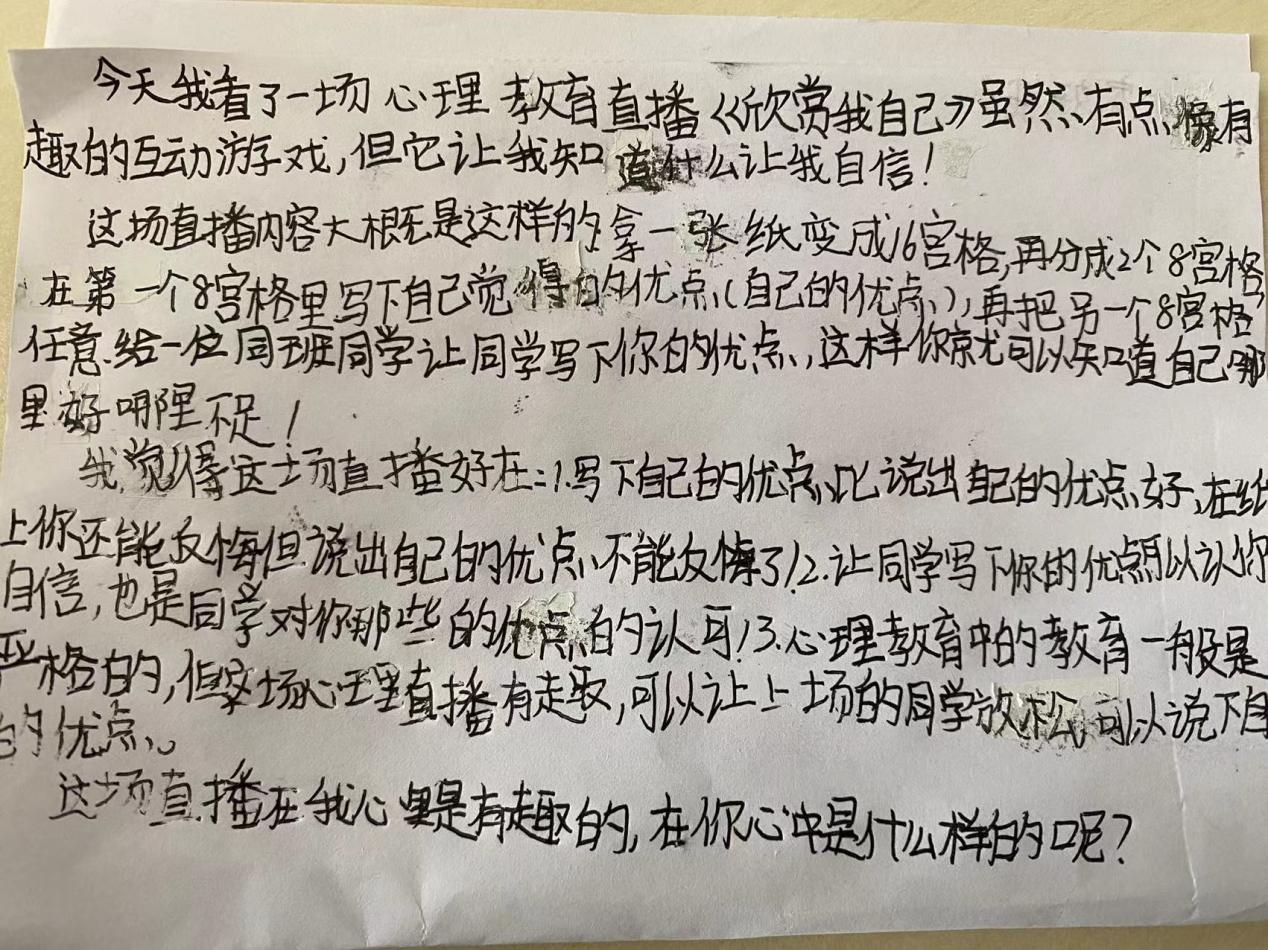 今天我看了一场心理教育直播《欣赏我自己》虽然有点像有
趣的互动游戏，但它让我知道什么让我自信！
这场直播内容大概是这样的拿一张纸变成16宫格，再分成2个8宫格
在第一个8宫格里写下自己觉得的优点（自己的优点），再把另一个8宫格
任意给一位同班同学让同学写下你的优点，这样你就可以知道自己哪
里好哪里不足！
我觉得这场直播好在：1.写下自己的优点比说出自己的优点好，在纸
上你还能反悔但说出自己的优点不能反悔了！2.让同学写下你的优点可以认你
自信，也是同学对你那些的优点的认可！3.心理教育中的教育一般是
严格的，但这场心理直播有趣，可以让上场的同学放松，可以说下自
的优点。
这场直播在我心里是有趣的，在你心中是什么样的呢？